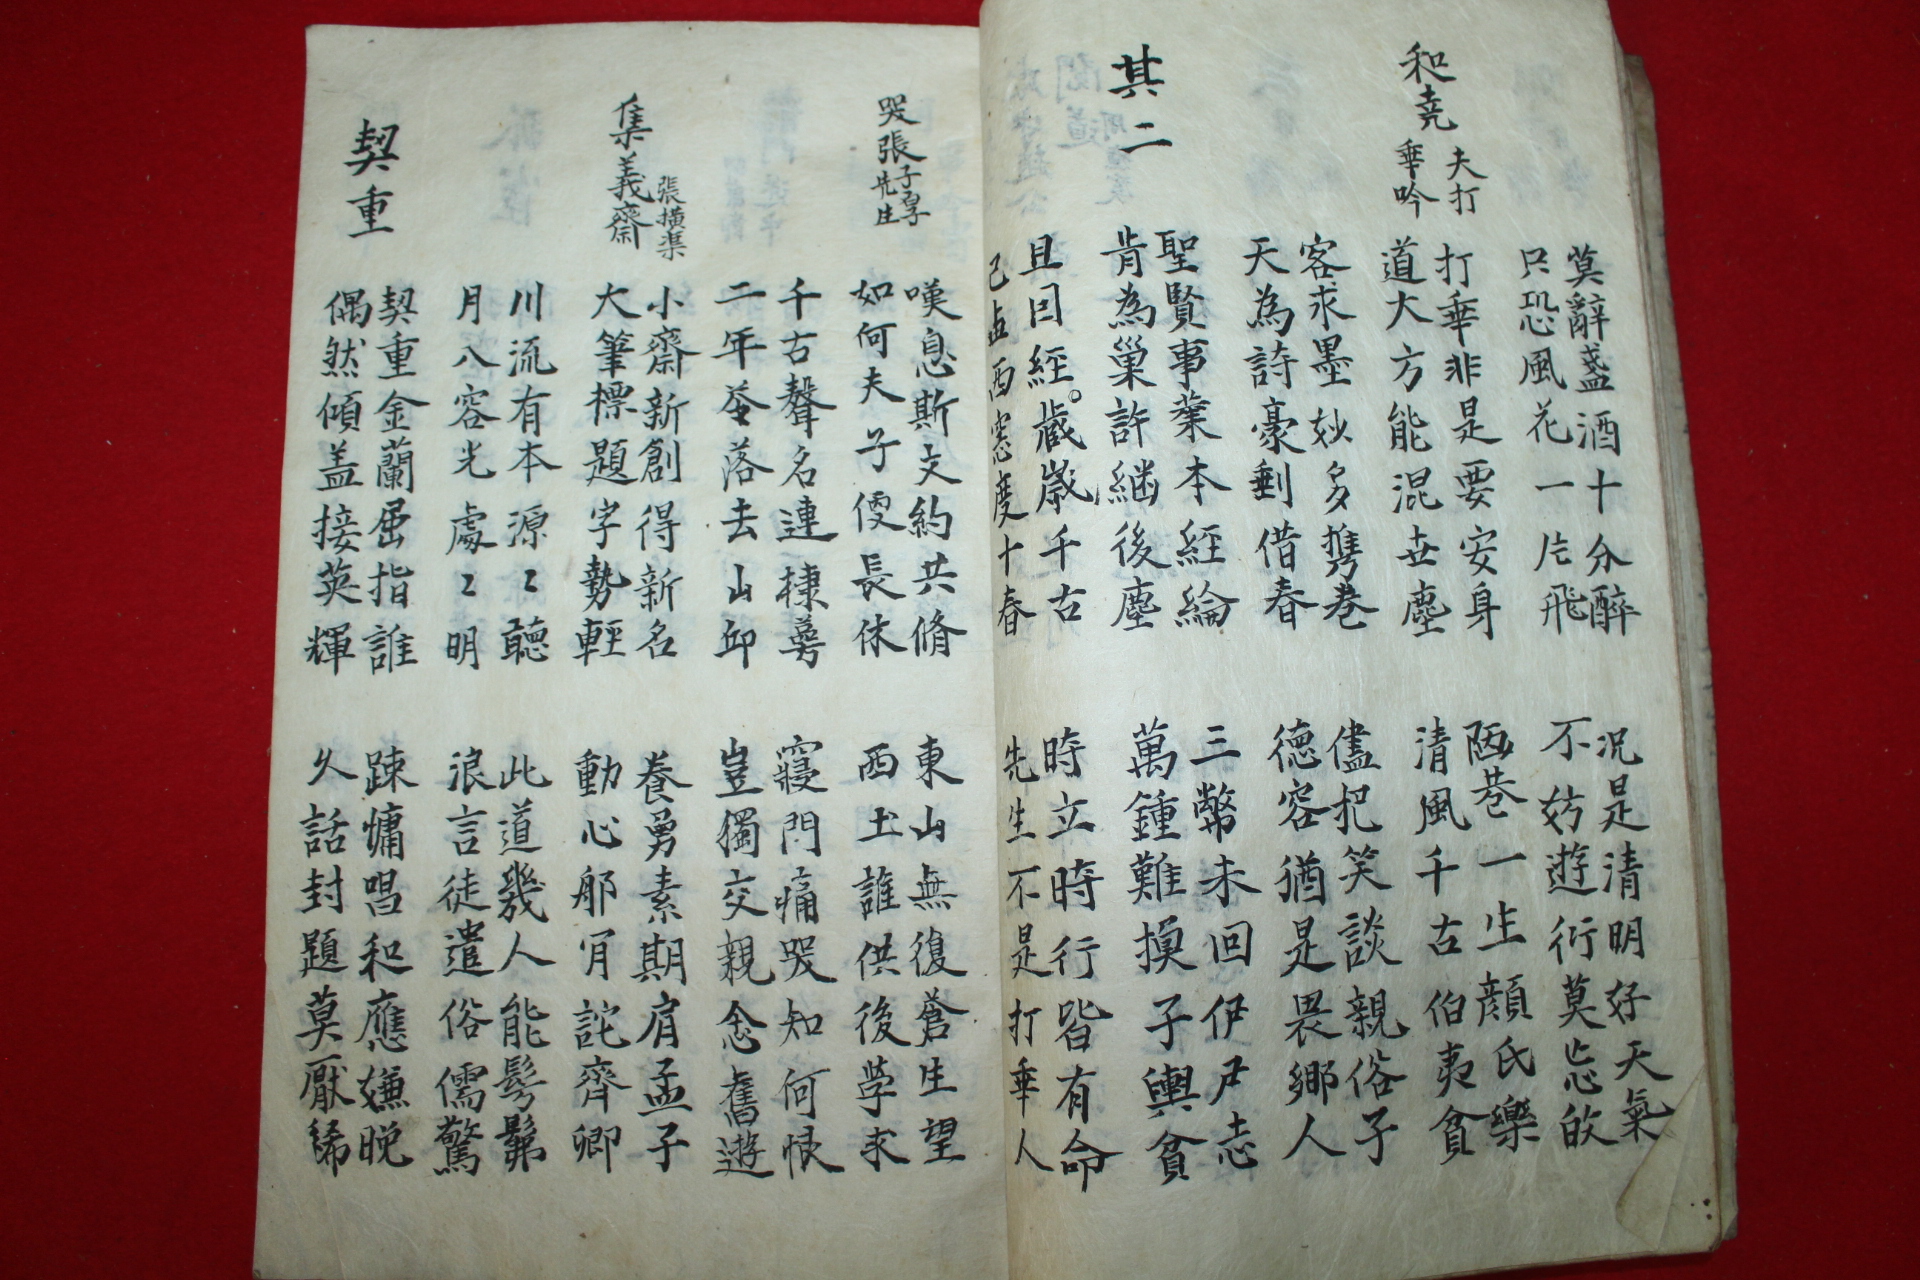 莫辭盞酒十分醉
只恐風花一片飛
況是清明好天氣
不妨遊衍莫忘故
和尭夫打乗吟
打乗非是要安身
道大方能混世塵
陋巷一生顔氏樂
清風千古伯夷貧
客求墨妙多携巻
天為詩豪剰借春
儘把笑談親俗子
徳容猶是畏鄉人
其二
聖賢事業本經綸
肯為巢許繼後塵
三幣未回伊尹志
萬鍾難換子輿貧
且因經。歳千古
已占西窓度十春
時立時行皆有命
先生不是打乗人
哭張子厚先生
嘆息斯文約共脩
如何夫子便長休
東山無復蒼生望
西土誰供後學求
千古聲名連棣萼
二年零落去山邱
寢門痛哭知何恨
豈獨交親念舊遊
集義齋 張橫渠
小齋新創得新名
大筆標題字勢輕
養勇素期肩孟子
動心那肎詫齊卿
川流有本源〻聽
月入容光處〻明
此道幾人能髣髴
浪言徒遣俗儒驚
契重
契重金蘭屈指誰
偶然傾盖接英輝
踈慵唱和應嫌晚
久話封題莫厭稀